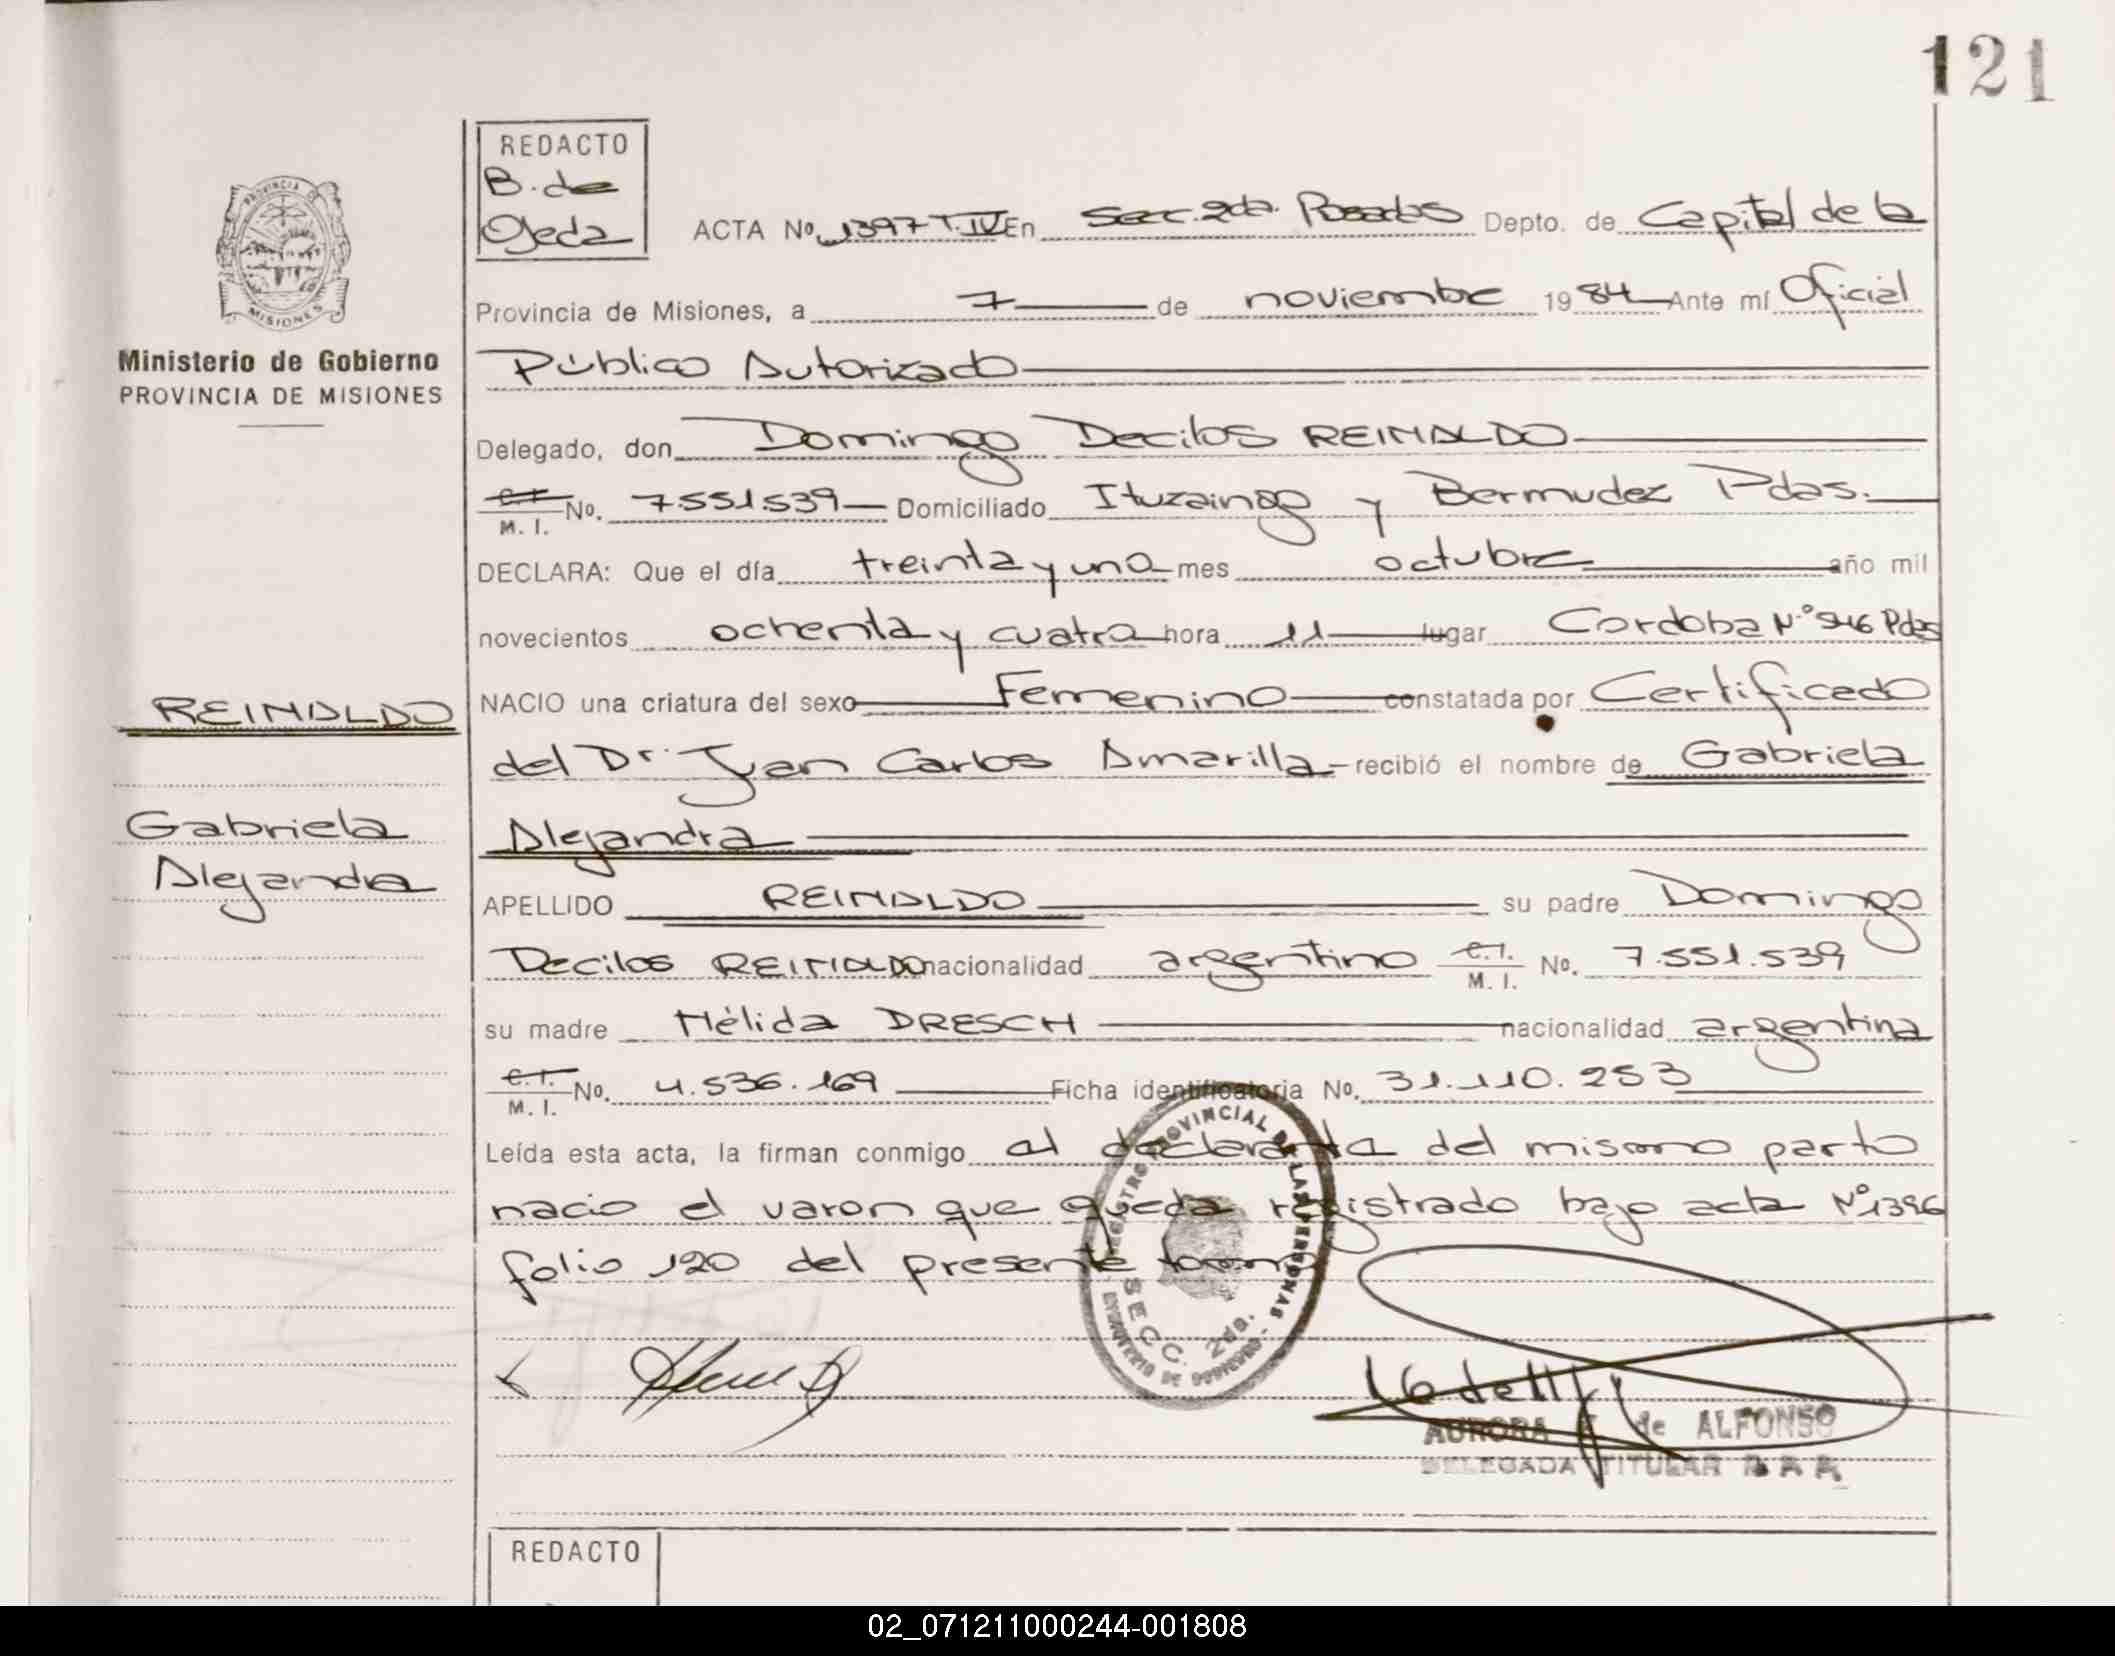 121
REDACTO
B. de
Ojeda
ACTA No. 1397 T.IV En Sec. 2da. Posadas Depto. de Capital de la
PROVINCIA DE
MISIONES
Provincia de Misiones, a 7 de noviembre 1984 Ante mí Oficial
Ministerio de Gobierno
PROVINCIA DE MISIONES
Público Autorizado
Delegado, don Domingo Decilos REINALDO
C.I. M. I. No. 7.551.539 Domiciliado Ituzaingo y Bermudez Pdas.
DECLARA: Que el día treinta y uno mes octubre año mil
novecientos ochenta y cuatro hora 11 lugar Cordoba N° 946 Pdas
REINALDO
NACIO una criatura del sexo Femenino constatada por Certificado
del Dr. Juan Carlos Amarilla recibió el nombre de Gabriela
Gabriela
Alejandra
Alejandra
APELLIDO REINALDO su padre Domingo
Decilos REINALDO nacionalidad argentino C.I. M. I. No. 7.551.539
su madre Hélida DRESCH nacionalidad argentina
C.I. M. I. No. 4.536.169 Ficha identificatoria No. 31.110.253
Leída esta acta, la firman conmigo al declarante del mismo parto
nacio el varon que queda registrado bajo acta N° 1396
folio 120 del presente tomo
REGISTRO PROVINCIAL DE LAS PERSONAS
SECC. 2da.
MINISTERIO DE GOBIERNO
AURORA de ALFONSO
DELEGADA TITULAR
REDACTO
02_071211000244-001808